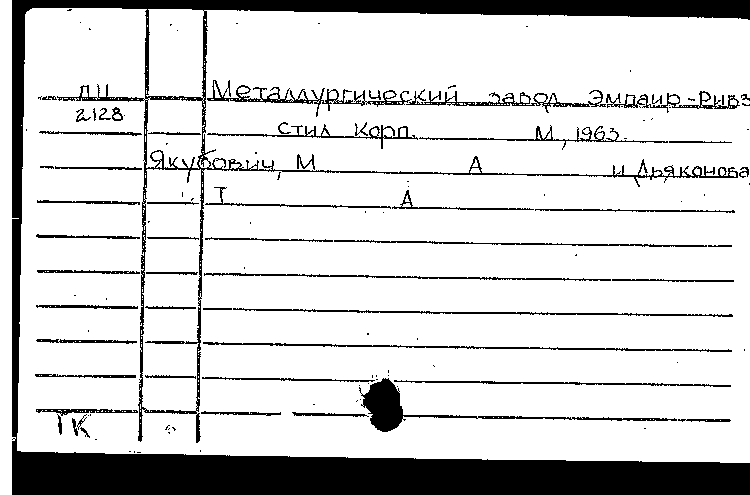 ДЦ Металлургический завод Эмпаир-Ривз
2128 стил Корп. М., 1963.
Якубович, М А и Дьяконова,
Т А
ТК